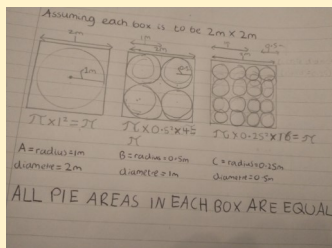 Assuming each box is to be 2m x 2m
2m
1m
π x 1² = π
π x 0.5² x 4 =
π
π x 0.25² x 16 = π
A = radius = 1m
diameter = 2m
B = radius = 0.5m
diameter = 1m
C = radius = 0.25m
diameter = 0.5m
ALL PIE AREAS IN EACH BOX ARE EQUAL